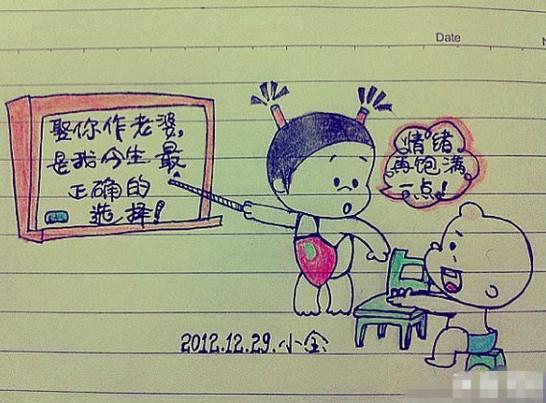 Date
娶你作老婆,
是我今生最
正确的
选择!
情绪
再饱满
一点!
2012.12.29.小金